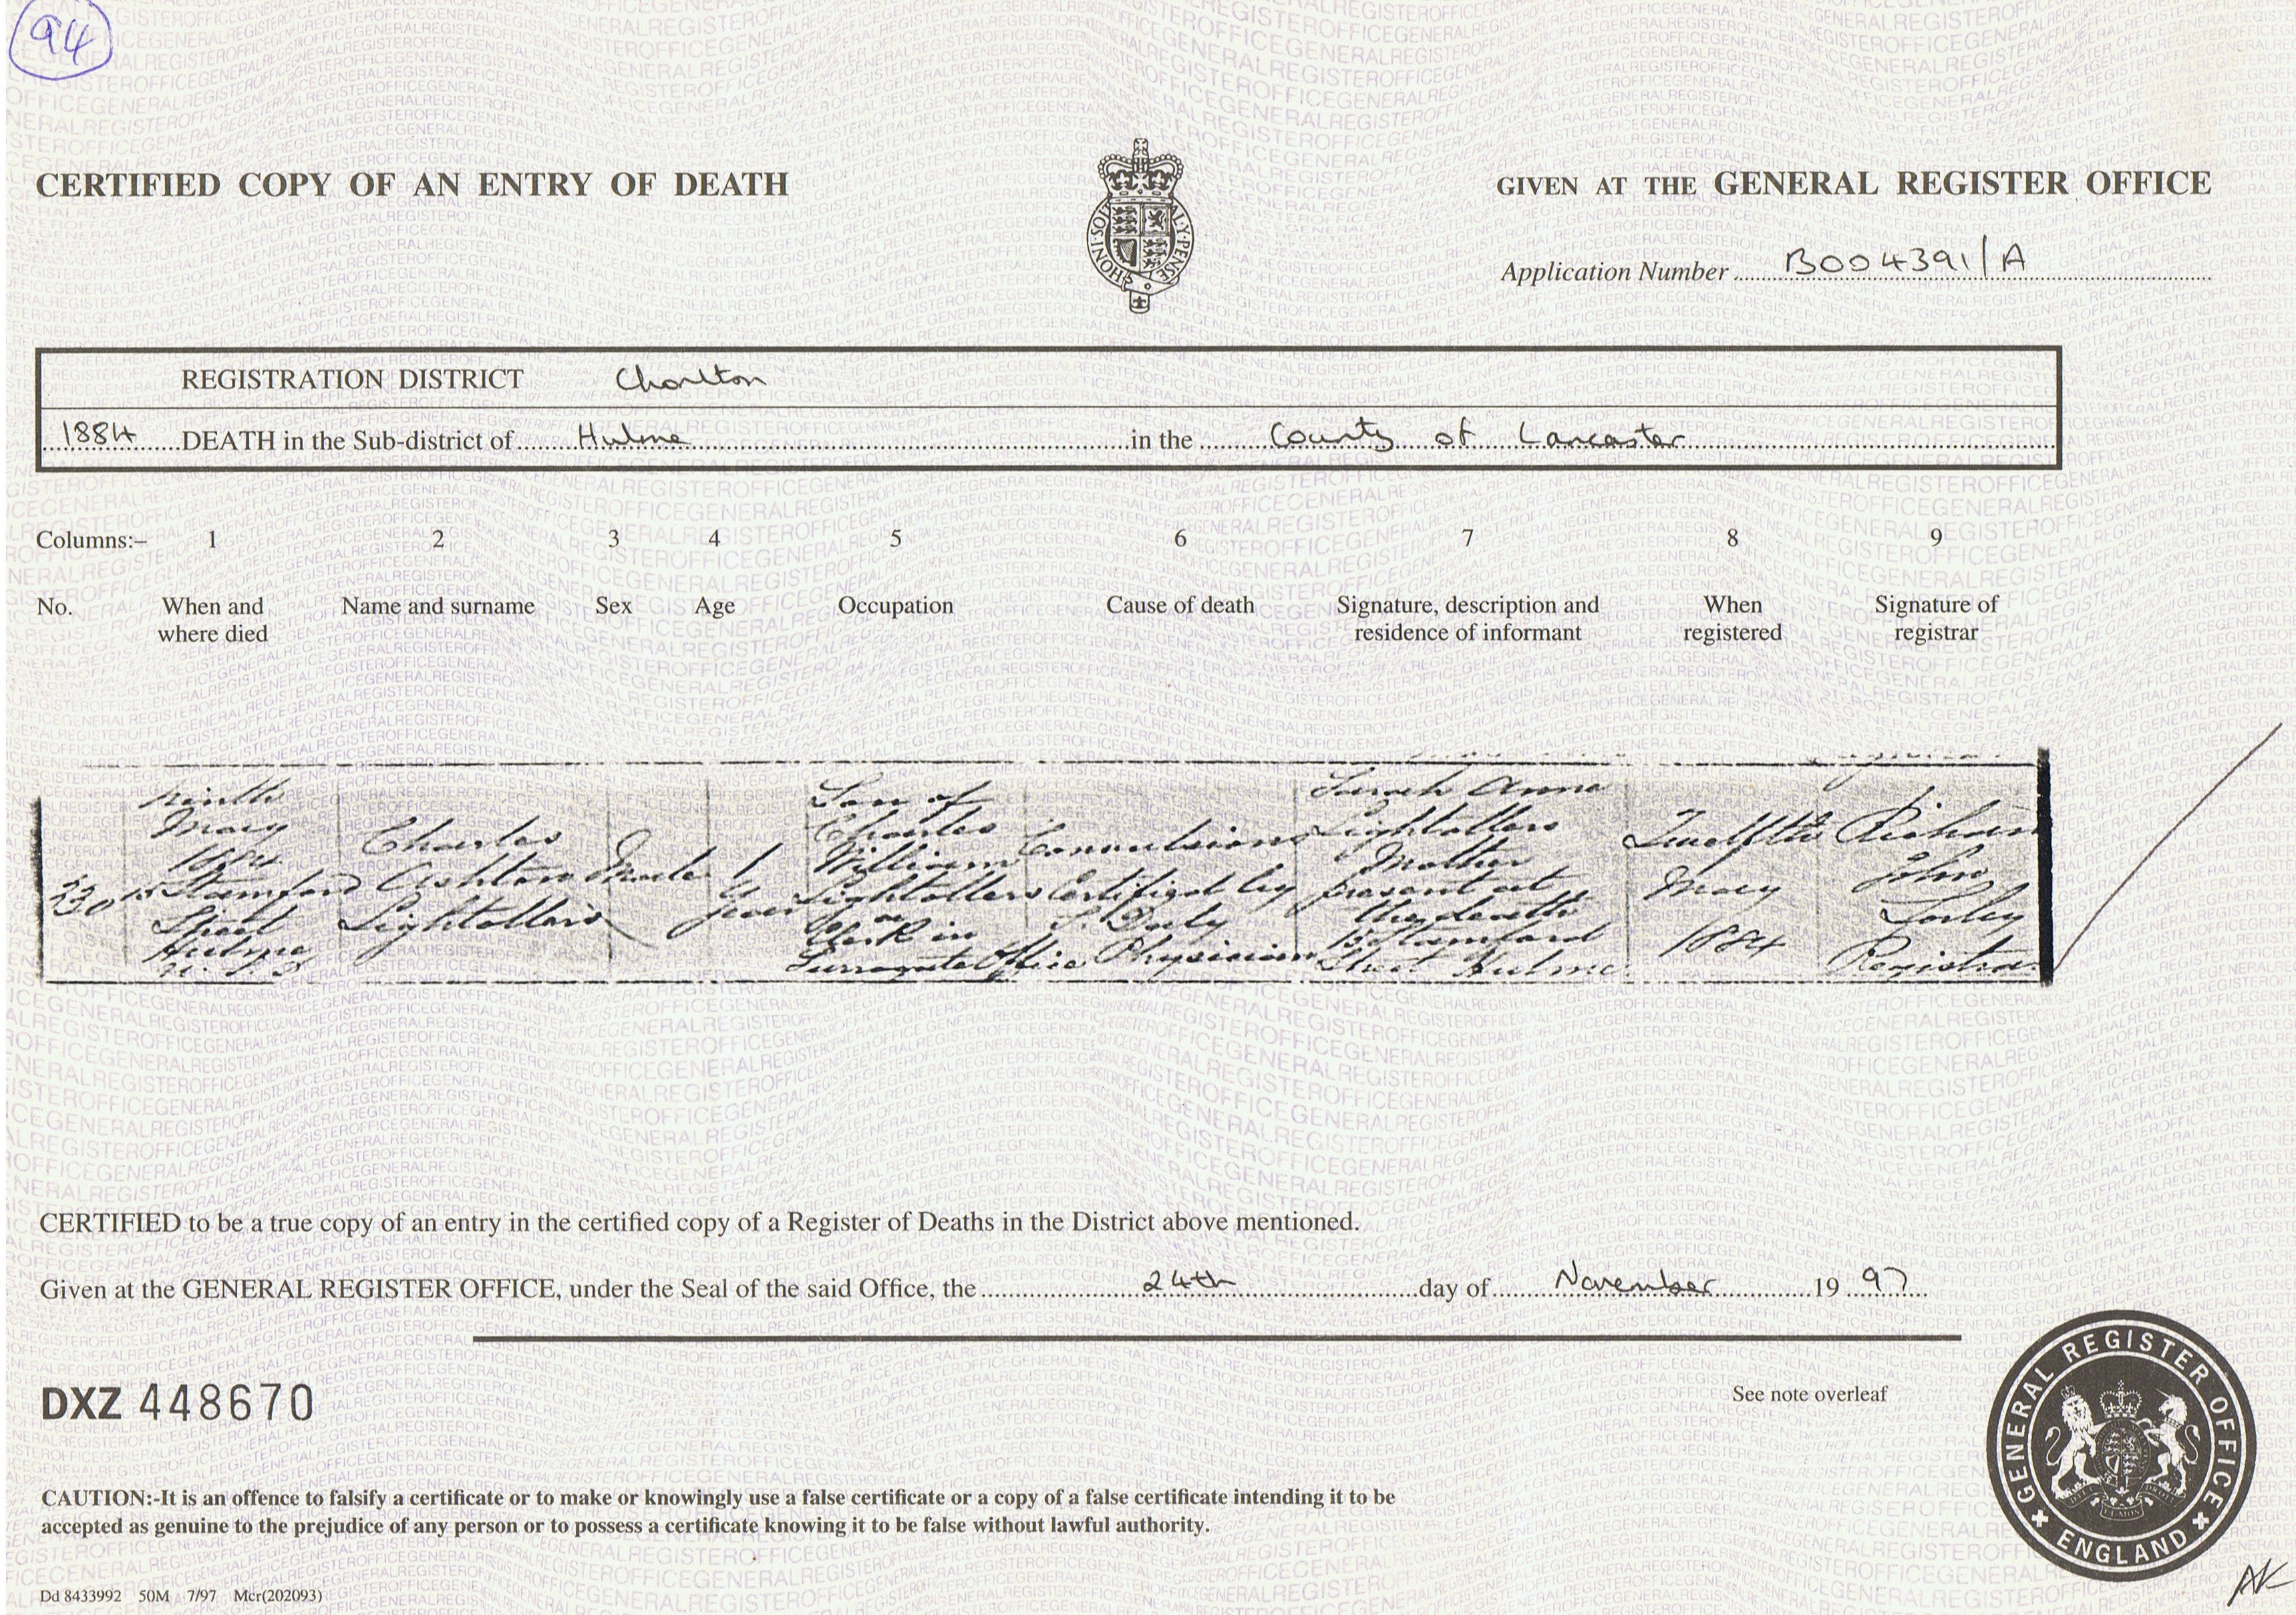 94
CERTIFIED COPY OF AN ENTRY OF DEATH
GIVEN AT THE GENERAL REGISTER OFFICE
HONI SOIT MAL Y PENSE
Application Number B004391/A
REGISTRATION DISTRICT Chorlton
1884 DEATH in the Sub-district of Hulme in the County of Lancaster
Columns:– 1 2 3 4 5 6 7 8 9
No. When and where died Name and surname Sex Age Occupation Cause of death Signature, description and residence of informant When registered Signature of registrar
230
Ninth
May
1884
15 Stamford
Street
Hulme
U.S.D
Charles
Ashton
Lightollers
Male
1
year
Son of
Charles
William
Lightollers
a
Clerk in
Surrogate Office
Convulsions
Certified by
Daly
Physician
Sarah Anna
Lightollers
Mother
present at
the death
15 Stamford
Street Hulme
Twelfth
May
1884
Richard
John
Registrar
CERTIFIED to be a true copy of an entry in the certified copy of a Register of Deaths in the District above mentioned.
Given at the GENERAL REGISTER OFFICE, under the Seal of the said Office, the 24th day of November 19 97
DXZ 448670
See note overleaf
GENERAL REGISTER OFFICE
ENGLAND
CAUTION:-It is an offence to falsify a certificate or to make or knowingly use a false certificate or a copy of a false certificate intending it to be
accepted as genuine to the prejudice of any person or to possess a certificate knowing it to be false without lawful authority.
Dd 8433992 50M 7/97 Mcr(202093)
AK